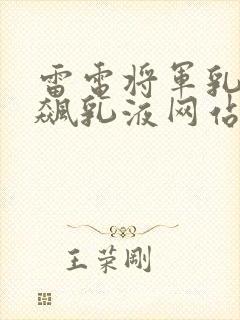 雷电将军乳
飙乳液网站
王荣刚